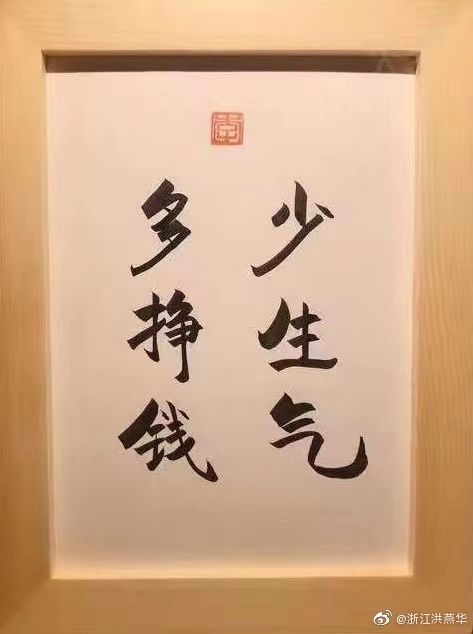 少生气
多挣钱
@浙江洪燕华